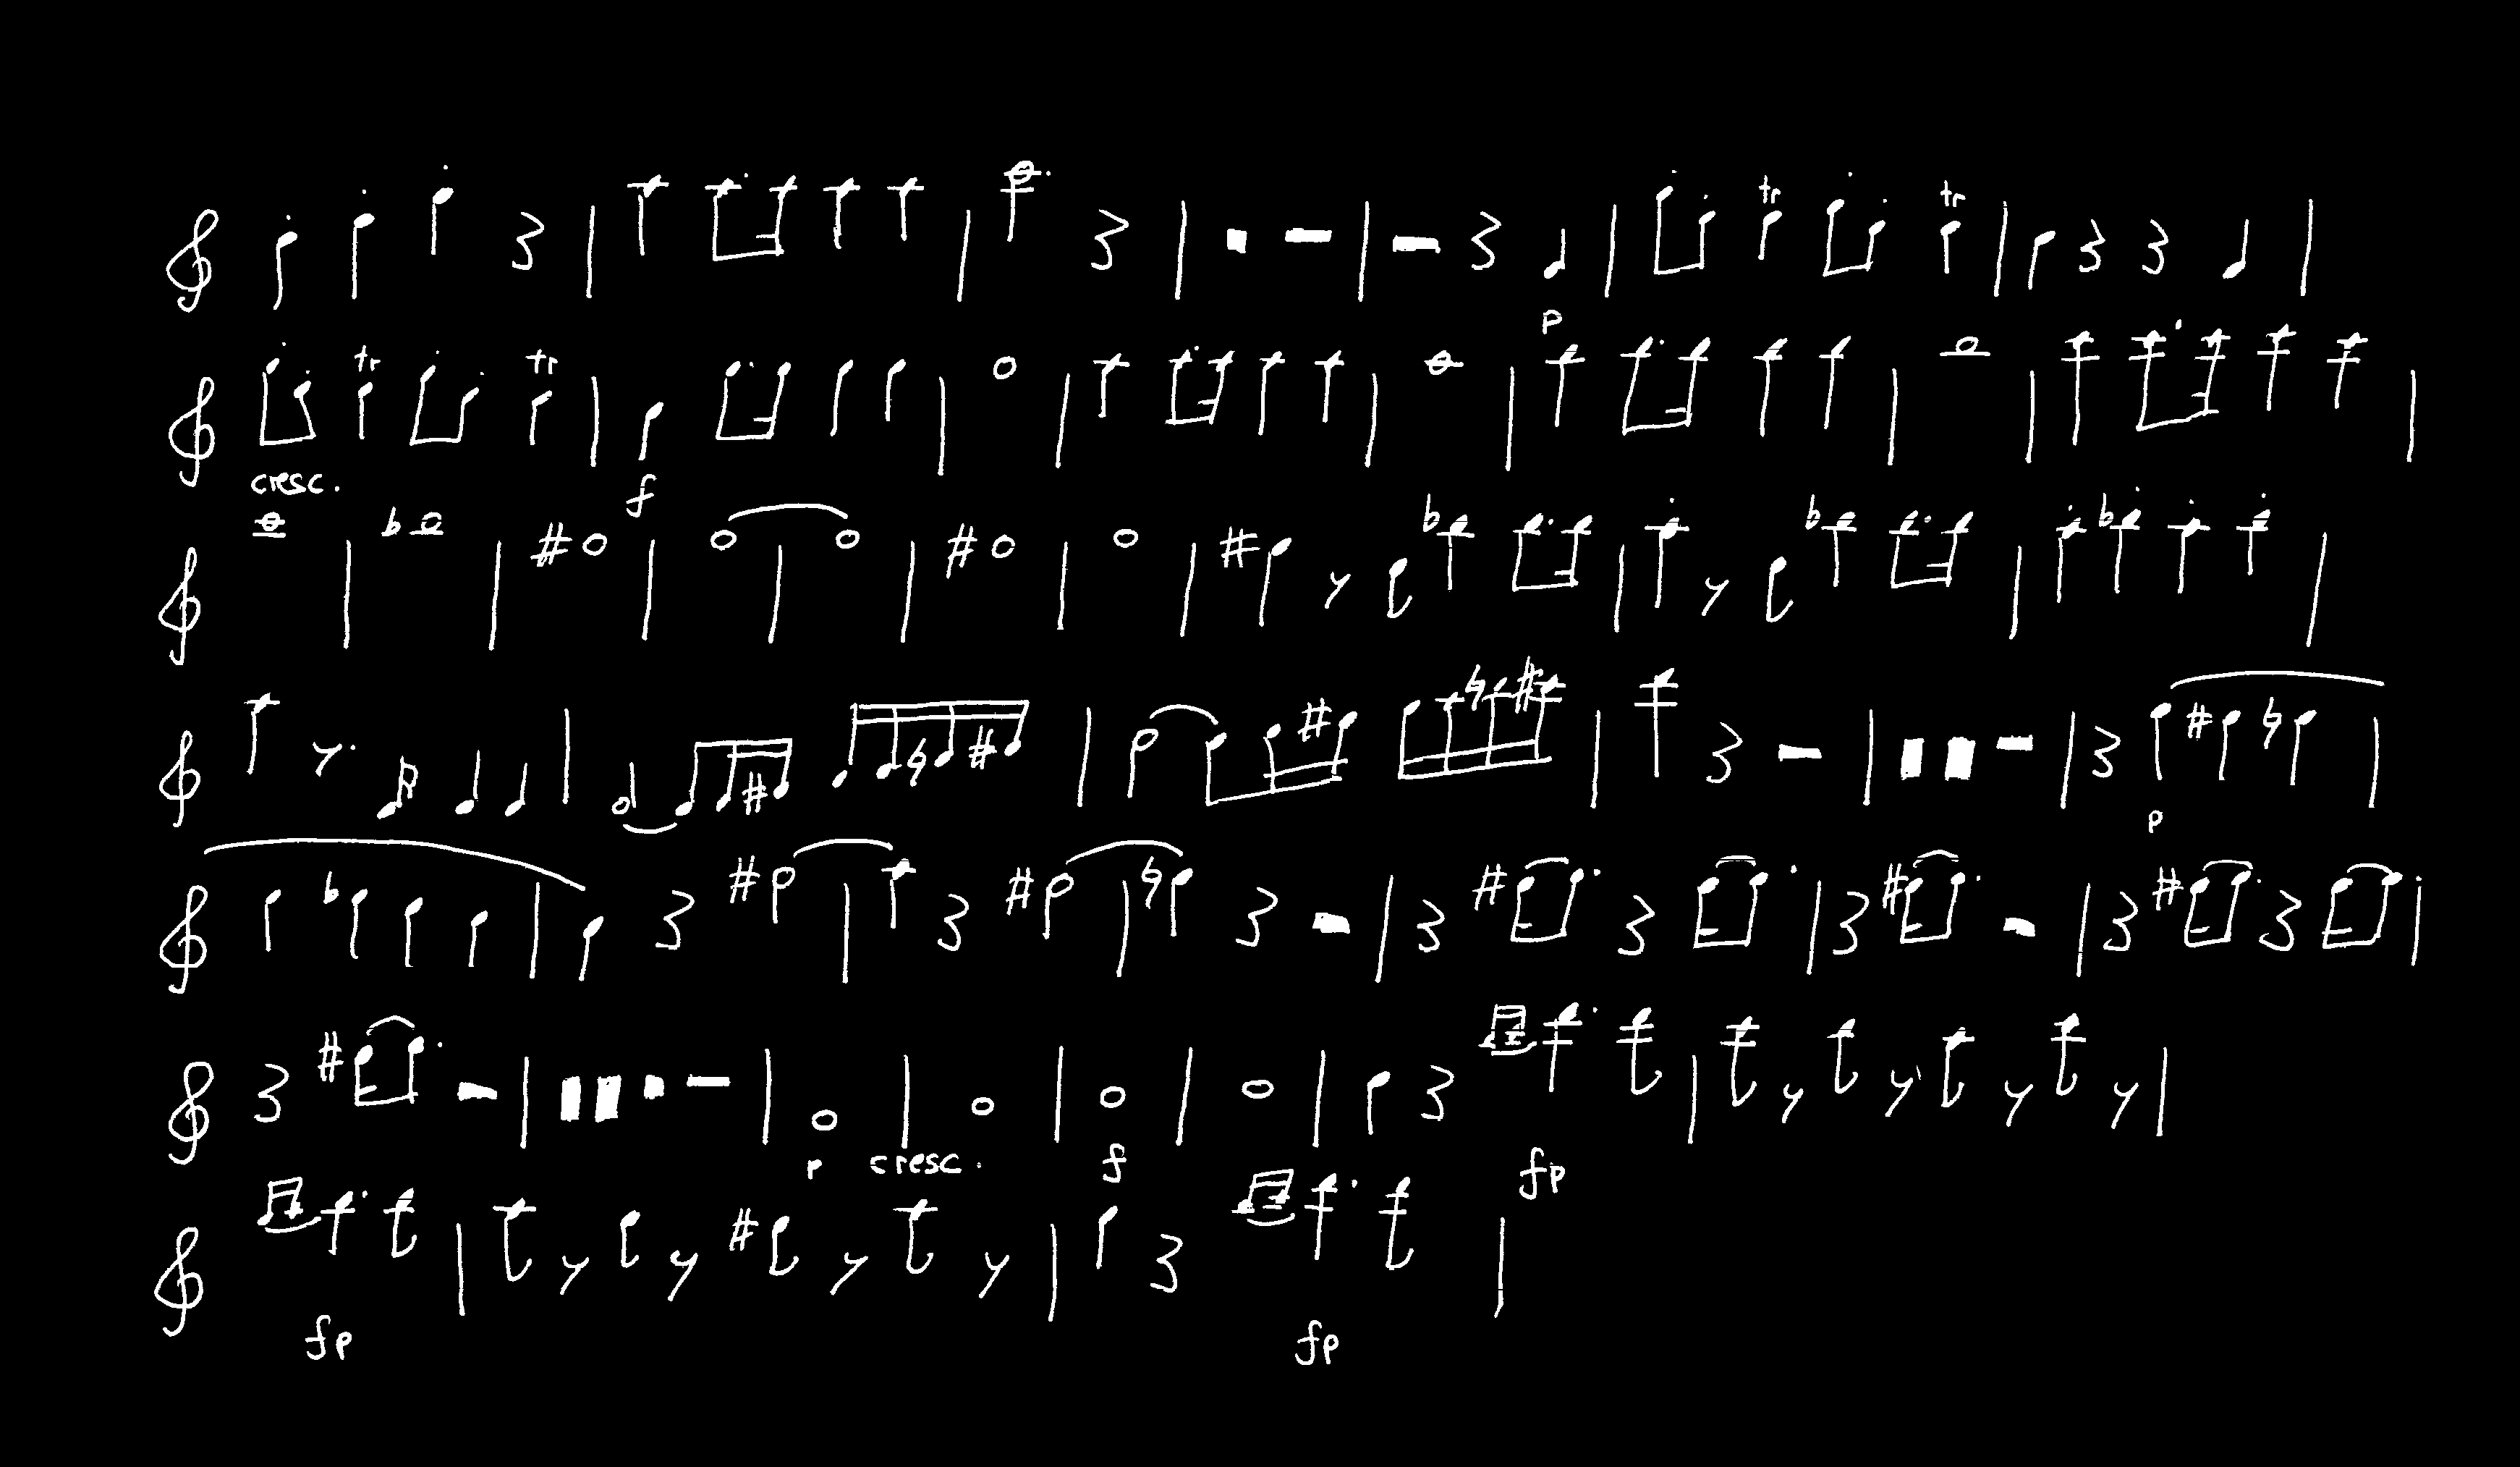 tr tr
p
tr tr
cresc. f
p
p cresc. f fp
fp fp